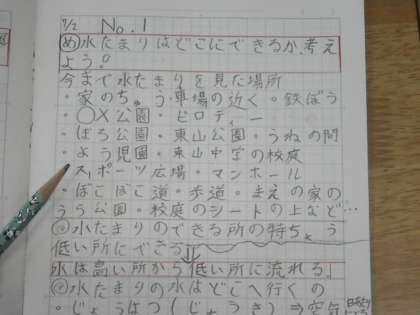 7/2 No.1
㋱水たまりはどこにできるか、考え
よう。
今まで水たまりを見た場所
・家のちゅう車場の近く。鉄ぼう
・○×公園・ピロティー
・ぱろ公園・東山公園・うねの間
・よう児園・東山中学の校庭
・スポーツ広場・マンホール
・ぼこぼこ道・歩道・まえの家の
うら公園・校庭のシートの上など…
水たまりのできる所の特ちょう
低い所にできる
水は高い所から低い所に流れる。
水たまりの水はどこへ行くの
・じょうはつ(じょうき)⇒空気